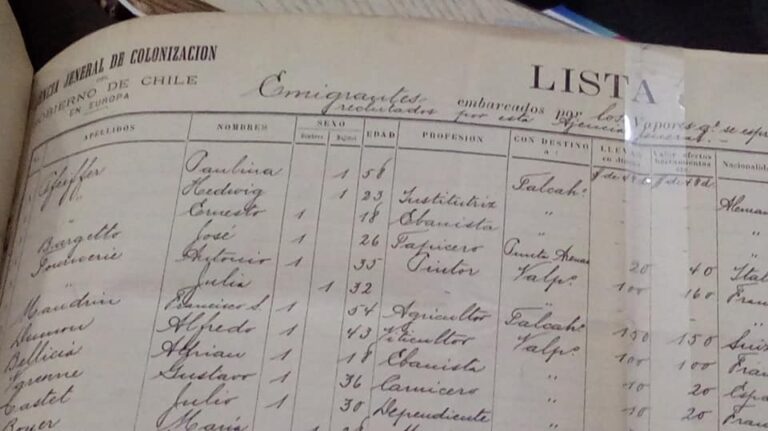 ENCIA JENERAL DE COLONIZACION
DEL
GOBIERNO DE CHILE
EN EUROPA
LISTA
Emigrantes embarcados por los Vapores q.e se espr
reclutados por esta Ajencia Jeneral.
APELLIDOS NOMBRES SEXO EDAD PROFESIÓN CON DESTINO á: LLEVAN en dinero Valor efectos herramientas etc. Nacionalid
Hombres Mujeres
Pfeiffer Paulina 1 58
" Hedwig 1 23 Institutriz Talcah.º Aleman
" Ernesto 1 18 Ebanista " "
José 1 26 Tapicero Punta Arenas 20 40 Ital
Antonio 1 35 Pintor Valp.º 100 160 Fran
" Julia 1 32
Mandrin Francisco S. 1 54 Agricultor Talcah.º 150 150 Suiz
Dumon Alfredo 1 43 Viticultor Valp.º 100 100 Fran
Bellicia Adrian 1 18 Ebanista " 10 20 Espa
Ygrenne Gustavo 1 36 Carnicero " 10 20 Fran
Castet Julio 1 30 Dependiente
Boyer María